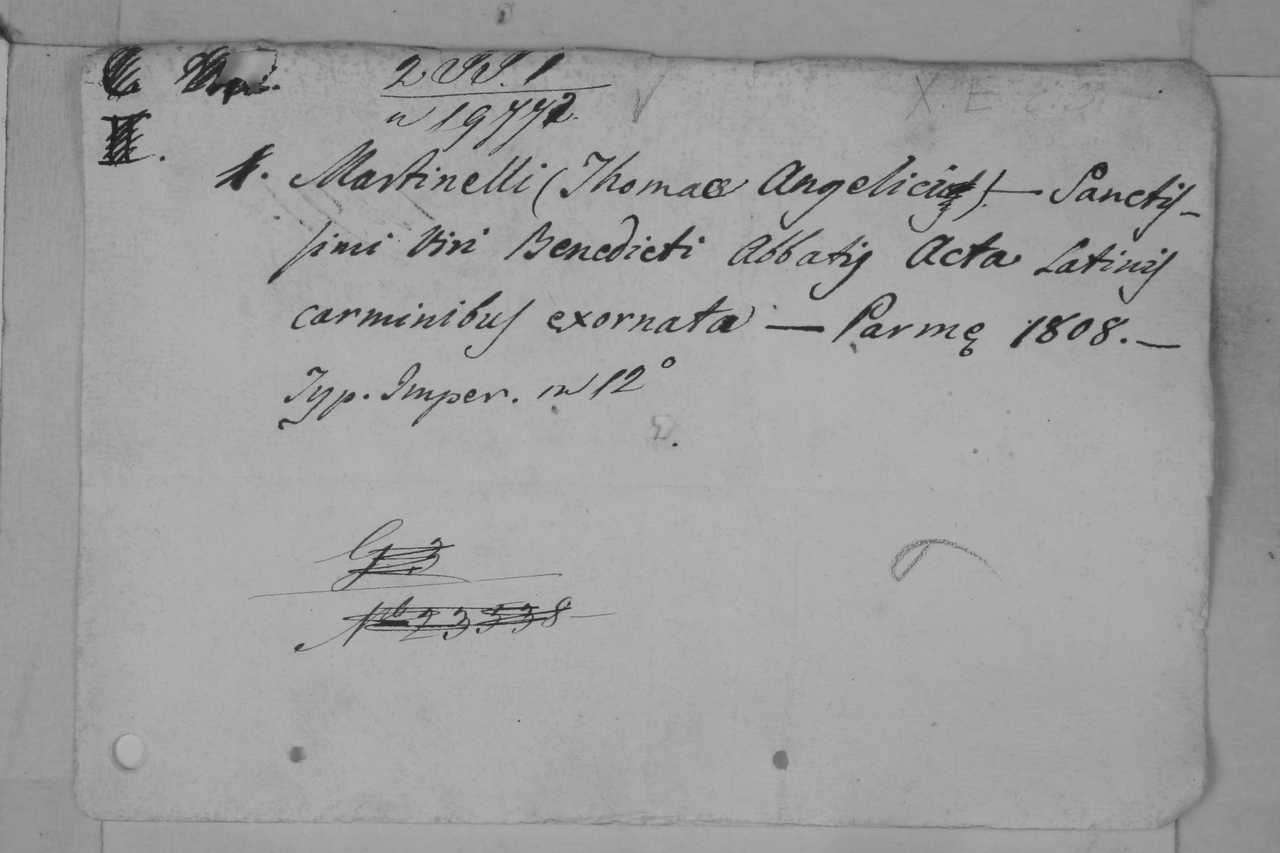 2 JJ. 1
n 19772
X. E. 6. 3
1. Martinelli (Thomae Angelici) — Sanctis-
simi Viri Benedicti Abbatis Acta Latinis
carminibus exornata — Parmę 1808. —
Typ. Imper. in 12°
G. 3
Nº 23338